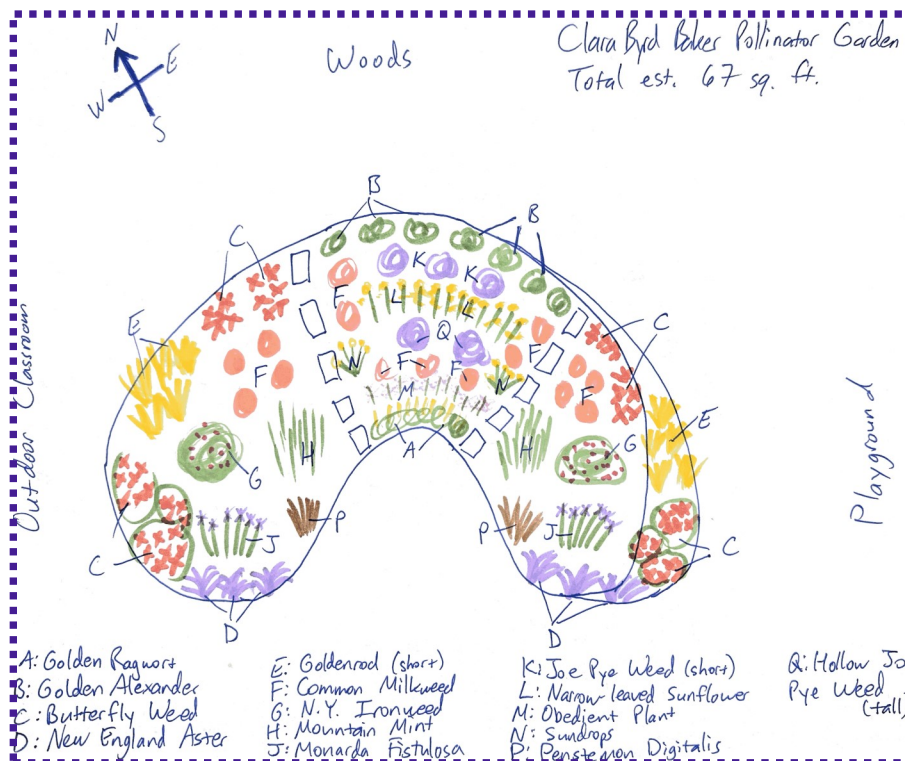 N
E
W
S
Woods
Clara Byrd Baker Pollinator Garden
Total est. 67 sq. ft.
B
B
C
K
K
F
L
L
E
Q
C
N
F
F
F
N
F
F
M
E
A
H
H
G
G
P
P
J
J
C
C
D
D
Outdoor Classroom
Playground
A: Golden Ragwort
B: Golden Alexander
C: Butterfly Weed
D: New England Aster
E: Goldenrod (short)
F: Common Milkweed
G: N.Y. Ironweed
H: Mountain Mint
J: Monarda Fistulosa
K: Joe Pye Weed (short)
L: Narrow-leaved Sunflower
M: Obedient Plant
N: Sundrops
P: Penstemon Digitalis
Q: Hollow Jo
Pye Weed
(tall)